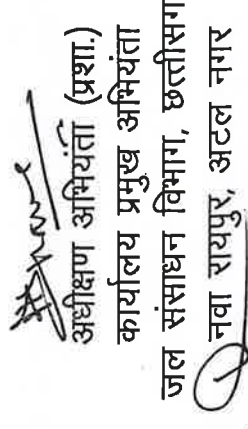 अधीक्षण अभियंता (प्रशा.)
कार्यालय प्रमुख अभियंता
जल संसाधन विभाग, छत्तीसगढ़
नवा रायपुर, अटल नगर